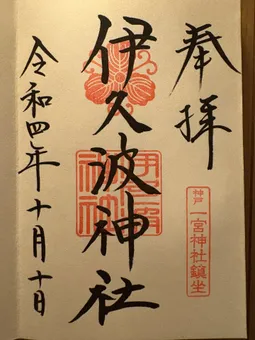 奉拝
神戸 一宮神社鎮坐
伊久波神社
令和四年十月十日